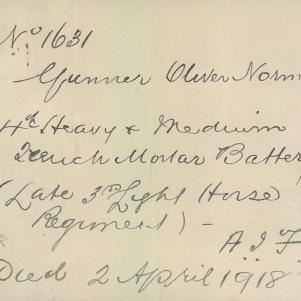 No 1631
Gunner Oliver Norm
4th Heavy & Medium
Trench Mortar Batter
(Late 3rd Light Horse
Regiment) -
A. I. F
Died 2 April 1918